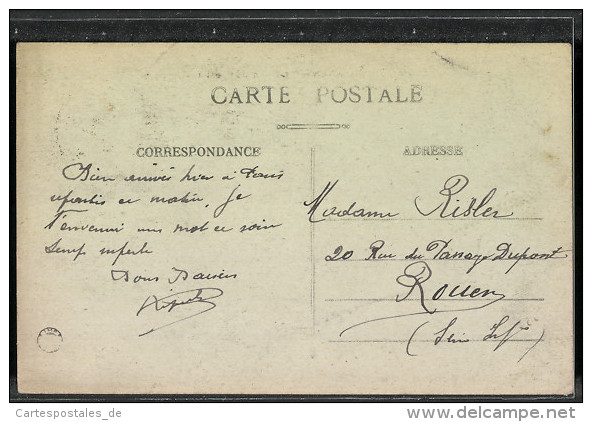 CARTE POSTALE
CORRESPONDANCE
ADRESSE
Bien arrivés hier à Paris
repartis ce matin, je
t'enverrai un mot ce soir
Temps superbe
Bons Baisers
Madame Risler
20 Rue du Passage Dupont
Rouen
(Sein Infre)
Cartespostales_de
www.delcampe.net